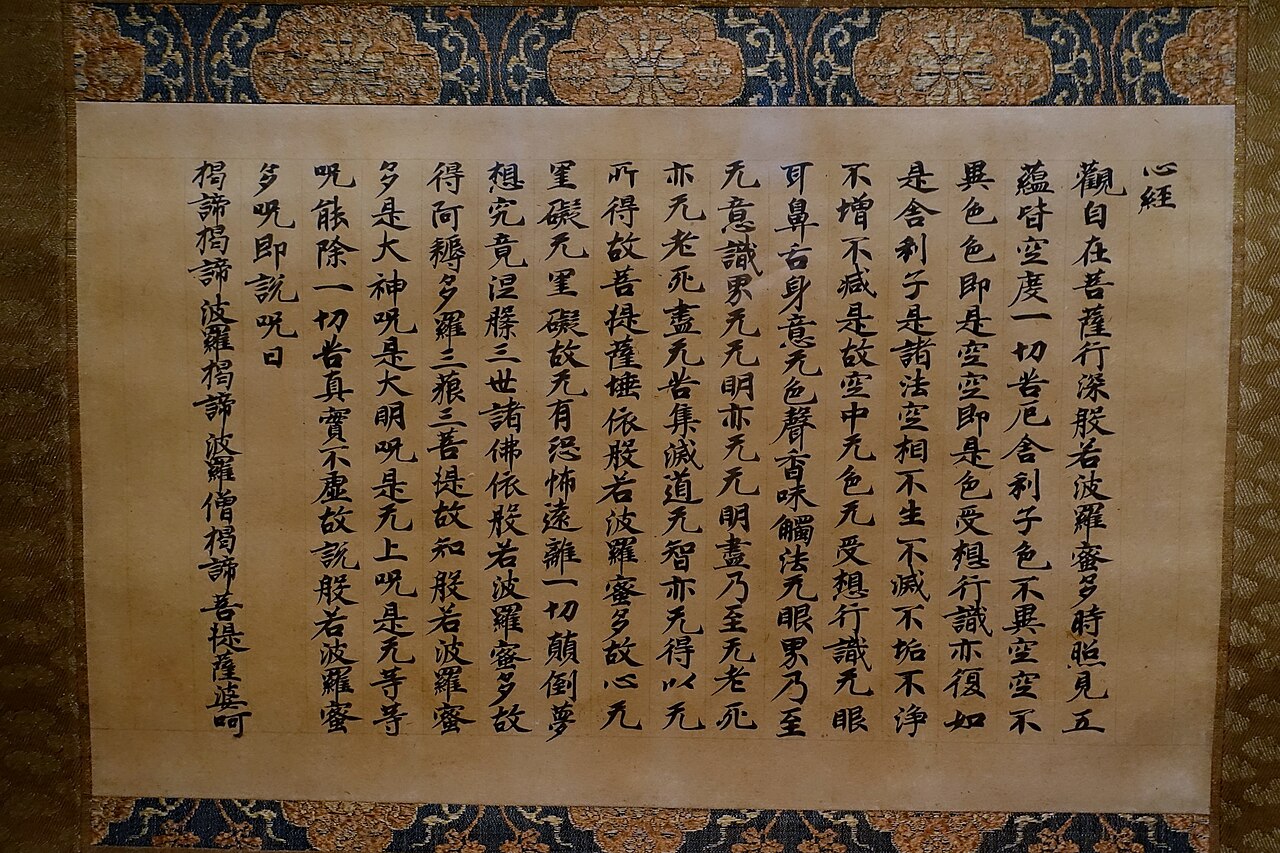 心経
觀自在菩薩行深般若波羅蜜多時照見五
蘊皆空度一切苦厄舍利子色不異空空不
異色色即是空空即是色受想行識亦復如
是舍利子是諸法空相不生不滅不垢不浄
不增不減是故空中无色无受想行識无眼
耳鼻舌身意无色聲香味觸法无眼界乃至
无意識界无无明亦无无明盡乃至无老死
亦无老死盡无苦集滅道无智亦无得以无
所得故菩提薩埵依般若波羅蜜多故心无
罣礙无罣礙故无有恐怖遠離一切顛倒夢
想究竟涅槃三世諸佛依般若波羅蜜多故
得阿耨多羅三藐三菩提故知般若波羅蜜
多是大神呪是大明呪是无上呪是无等等
呪能除一切苦真實不虛故説般若波羅蜜
多呪即説呪曰
揭諦揭諦波羅揭諦波羅僧揭諦菩提薩婆呵